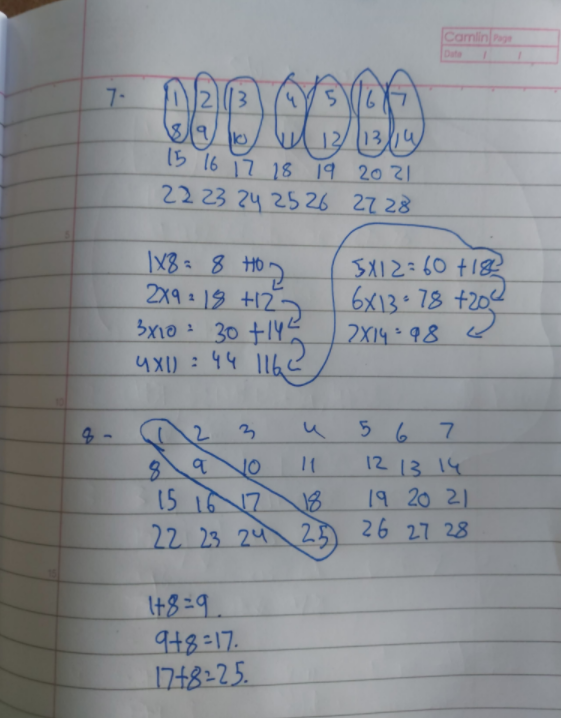 Camlin Page
Date / /
7. 1 2 3 4 5 6 7
8 9 10 11 12 13 14
15 16 17 18 19 20 21
22 23 24 25 26 27 28
1x8= 8 +10
2x9= 18 +12
3x10= 30 +14
4x11= 44 +16
5x12=60 +18
6x13=78 +20
7x14=98
8- 1 2 3 4 5 6 7
8 9 10 11 12 13 14
15 16 17 18 19 20 21
22 23 24 25 26 27 28
1+8=9.
9+8=17.
17+8=25.